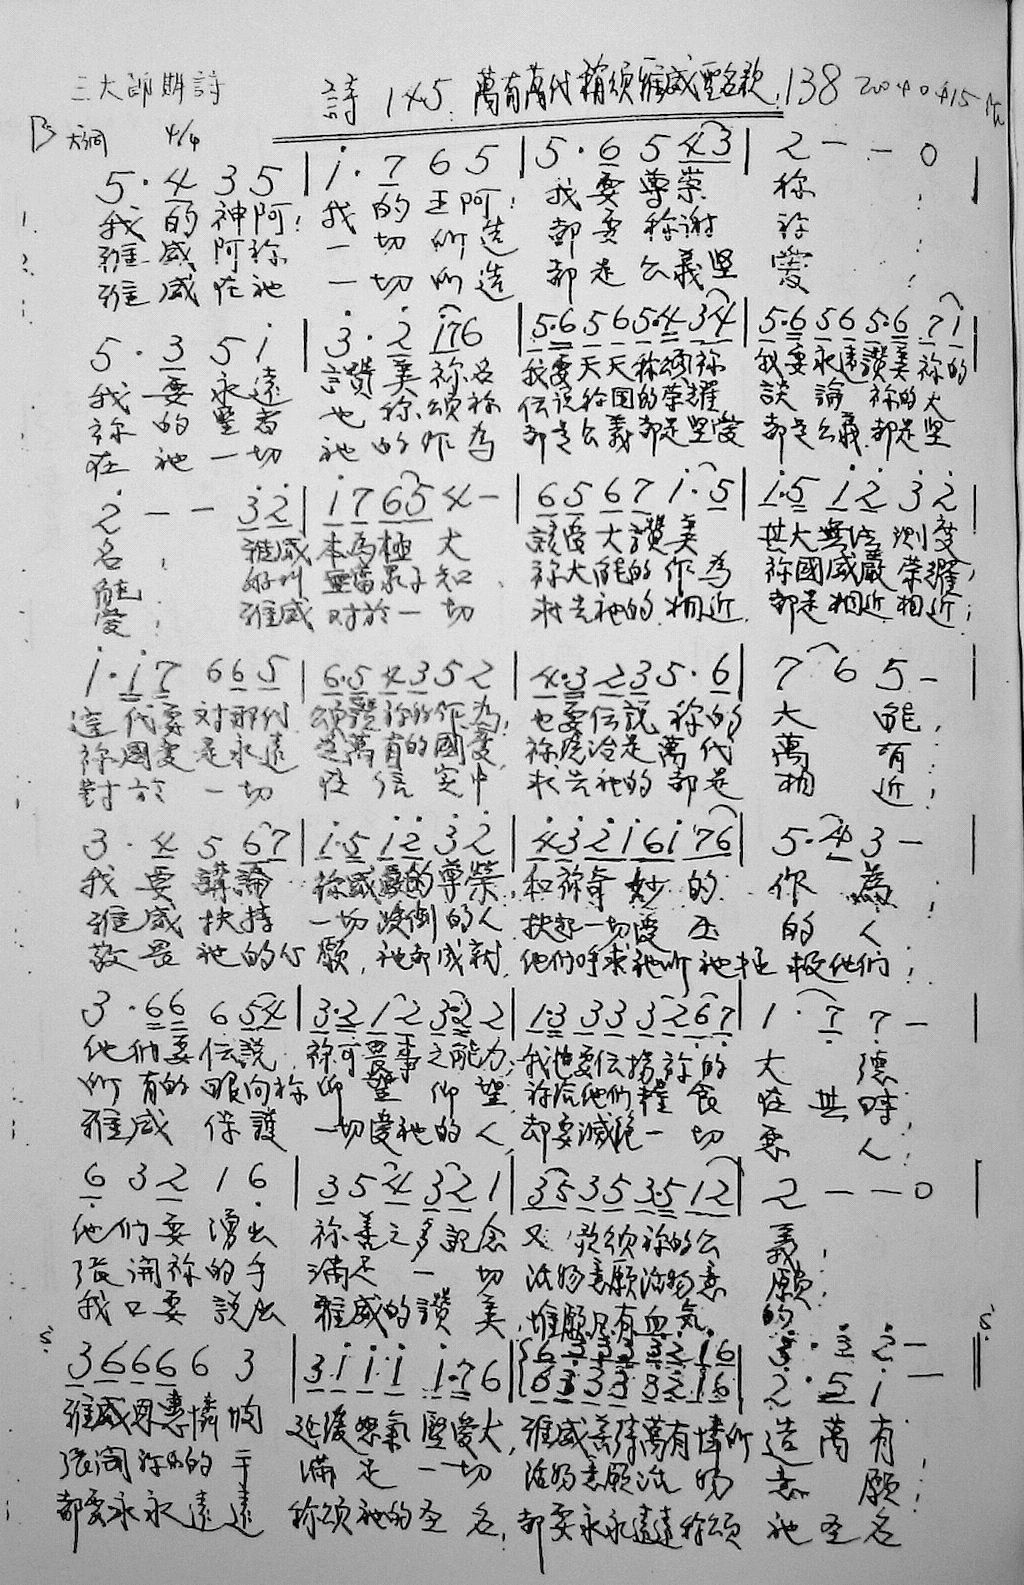 三大師期詩 詩145:萬有萬代稱頌雅威聖名歌.138 20040415
B 大調 4/4
5·4 3 5 | i·7 6 5 | 5·6 5 43 | 2 - - 0 |
我的神阿! 我的王阿! 我要尊崇祢
雅威阿祢一切所造都要称谢祢
雅威在祂一切所造都是公義坚愛
5·3 5 i | 3·2 i76 | 5·6 56 5·4 34 | 5·6 56 5·6 7i |
我要永遠讚美祢名我要天天称頌祢我要永遠讚美祢的
祢的聖者也称頌祢传说祢国的荣耀談論祢的大
在祂一切祂的作為都是公義都是坚愛都是公義都是坚
2 - - 32 | i7 65 4 - | 65 67 i·5 | i·5 i2 32 |
名, 雅威本為極大該受大讚美其大無法測度
能: 好叫世人知祢大能的作為祢國威嚴荣耀,
愛: 雅威对於一切求告祂的相近都是相近相近;
i·i7 66 5 | 6·5 43 52 | 4·3 23 5·6 | 7 6 5 - |
這代要对那代頌讚祢的作為, 也要传説祢的大能,
祢國度是永遠萬有的國度, 祢统治是萬代萬有:
對於一切在信实中求告祂的都是相近:
3·4 5 67 | i·5 i2 32 | 43 2i 6i 76 | 5·4 3 - |
我要講論祢威嚴的尊榮, 和祢奇妙的作為,
雅威扶持一切跌倒的人扶起一切受压的人
敬畏祂的心願, 祂都成就, 他们呼求祂所祂拯救他们:
3·66 6 54 | 3·2 12 3·2 2 | 1·3 33 32 67 | 1·7 7 - |
他们要传説祢可畏事之能力; 我也要传揚祢的大德
所有的眼向祢仰望仰望祢给他们糧食在其時,
雅威保護一切愛祂的人, 却要滅絕一切恶人:
6 3 2 1 6 | 3 5 4 32 1 | 35 35 3·5 12 | 2 - - 0
他们要湧出祢善之多記念又歌頌祢的公義:
张開祢的手满足一切活物意願活物意願:
我口要説出雅威的讚美, 惟願凡有血氣的
36 66 6 3 | 3i i·i i·76 | 63 33 32 i6 | 3·3 2 -
63 33 32 i6 | 2·5 i -
雅威恩惠憐憫延缓怒氣坚愛大, 雅威善待萬有憐所造萬有
张開祢的手满足一切活物意願活物意願:
都要永永遠遠称頌祂的圣名, 都要永永遠遠称頌祂圣名